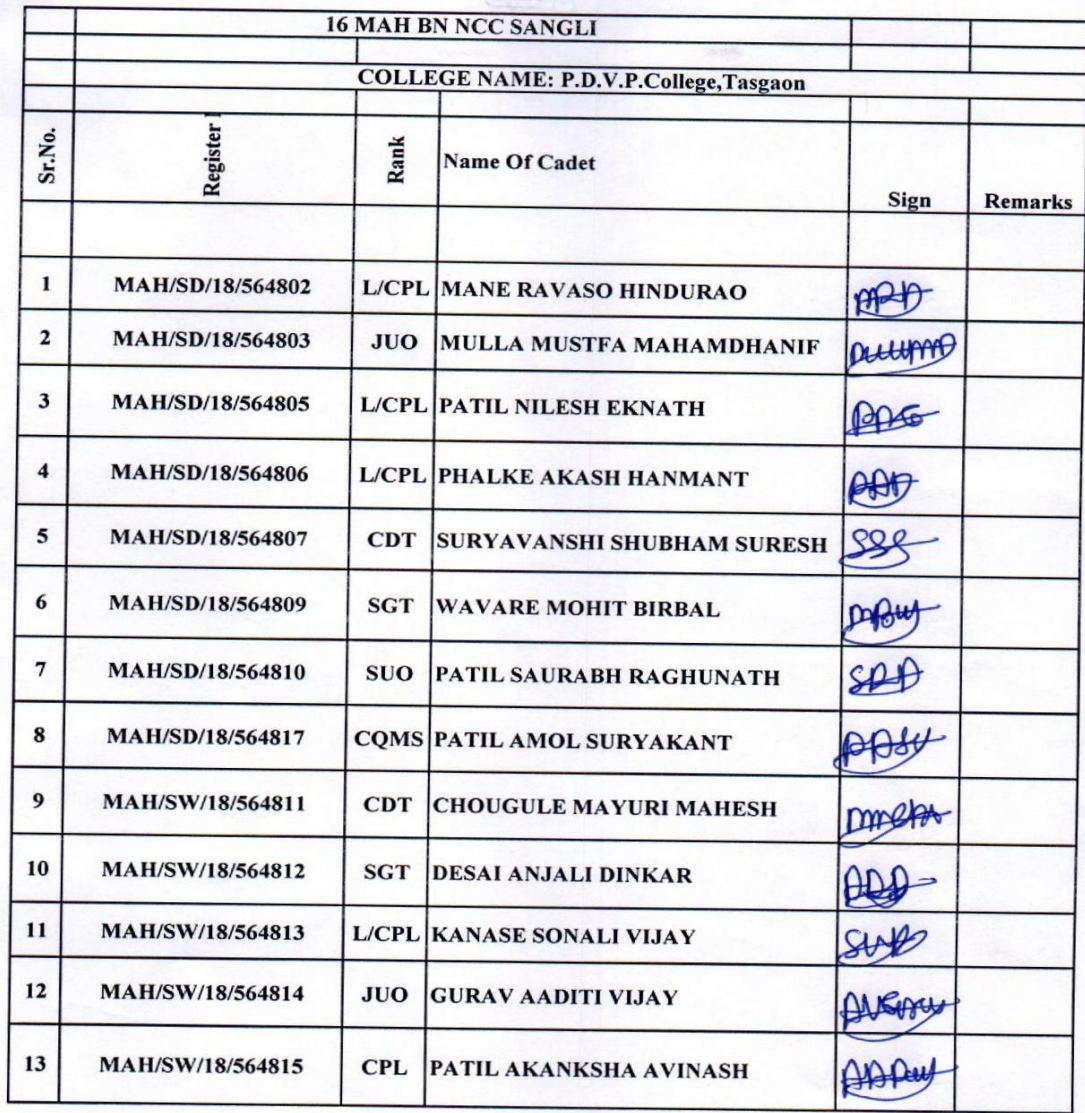 16 MAH BN NCC SANGLI
COLLEGE NAME: P.D.V.P.College,Tasgaon
Sr.No. Register Rank Name Of Cadet Sign Remarks
1 MAH/SD/18/564802 L/CPL MANE RAVASO HINDURAO
2 MAH/SD/18/564803 JUO MULLA MUSTFA MAHAMDHANIF
3 MAH/SD/18/564805 L/CPL PATIL NILESH EKNATH
4 MAH/SD/18/564806 L/CPL PHALKE AKASH HANMANT
5 MAH/SD/18/564807 CDT SURYAVANSHI SHUBHAM SURESH
6 MAH/SD/18/564809 SGT WAVARE MOHIT BIRBAL
7 MAH/SD/18/564810 SUO PATIL SAURABH RAGHUNATH
8 MAH/SD/18/564817 CQMS PATIL AMOL SURYAKANT
9 MAH/SW/18/564811 CDT CHOUGULE MAYURI MAHESH
10 MAH/SW/18/564812 SGT DESAI ANJALI DINKAR
11 MAH/SW/18/564813 L/CPL KANASE SONALI VIJAY
12 MAH/SW/18/564814 JUO GURAV AADITI VIJAY
13 MAH/SW/18/564815 CPL PATIL AKANKSHA AVINASH